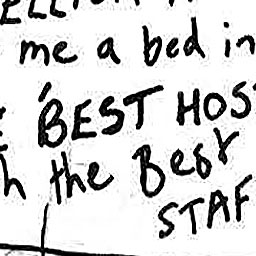 me a bed in
BEST HOS
h the Best
STAF